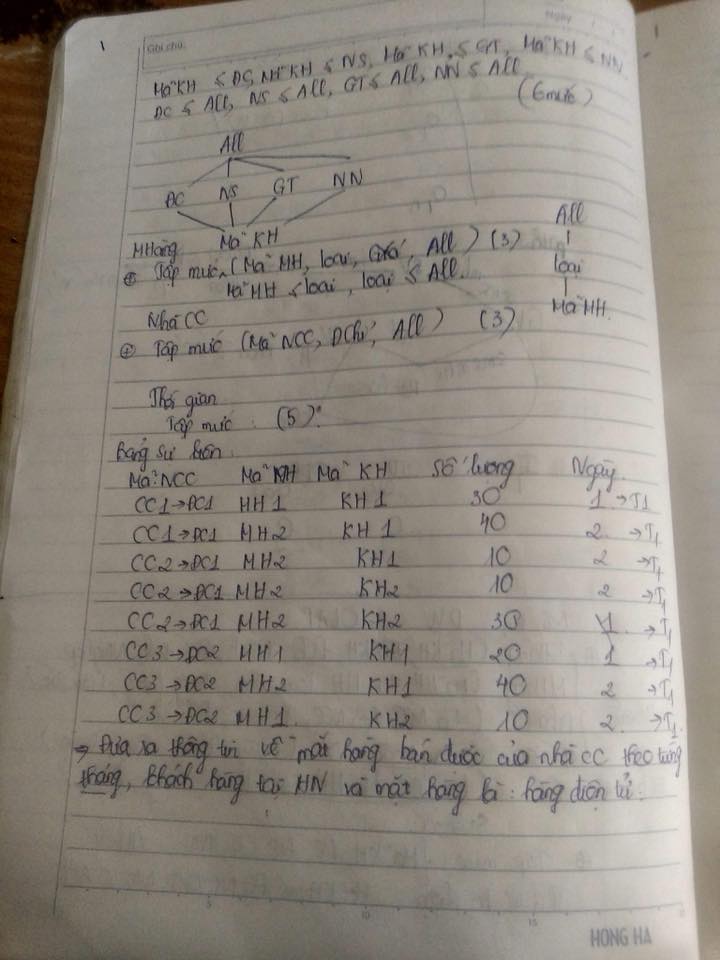 Ghi chú:
Ngày
Mã KH ≤ ĐC, Mã KH ≤ NS, Mã KH ≤ GT, Mã KH ≤ NN
ĐC ≤ All, NS ≤ All, GT ≤ All, NN ≤ All
(6 mức)
All
ĐC NS GT NN
Mã KH
MHàng
⊕ Tập mức (Mã MH, loại, Giá, All) (3)
Mã MH ≤ loại, loại ≤ All.
All
loại
Mã MH.
Nhà CC
⊕ Tập mức (Mã NCC, ĐChỉ, All) (3)
Thời gian
Tập mức : (5).
Bảng sự kiện
Mã NCC Mã MH Mã KH Số lượng Ngày
CC1→ĐC1 MH1 KH1 30 1 →T1
CC1→ĐC1 MH2 KH1 40 2 →T1
CC2→ĐC1 MH2 KH1 10 2 →T1
CC2→ĐC1 MH2 KH2 10 2 →T1
CC2→ĐC1 MH2 KH2 30 1 →T1
CC3→ĐC2 MH1 KH1 20 1 →T1
CC3→ĐC2 MH2 KH1 40 2 →T1
CC3→ĐC2 MH1 KH2 10 2 →T1
⇒ Đưa ra thông tin về mặt hàng bán được của nhà CC theo từng
tháng, khách hàng tại HN và mặt hàng là : hàng điện tử.
5 10 15
HONG HA